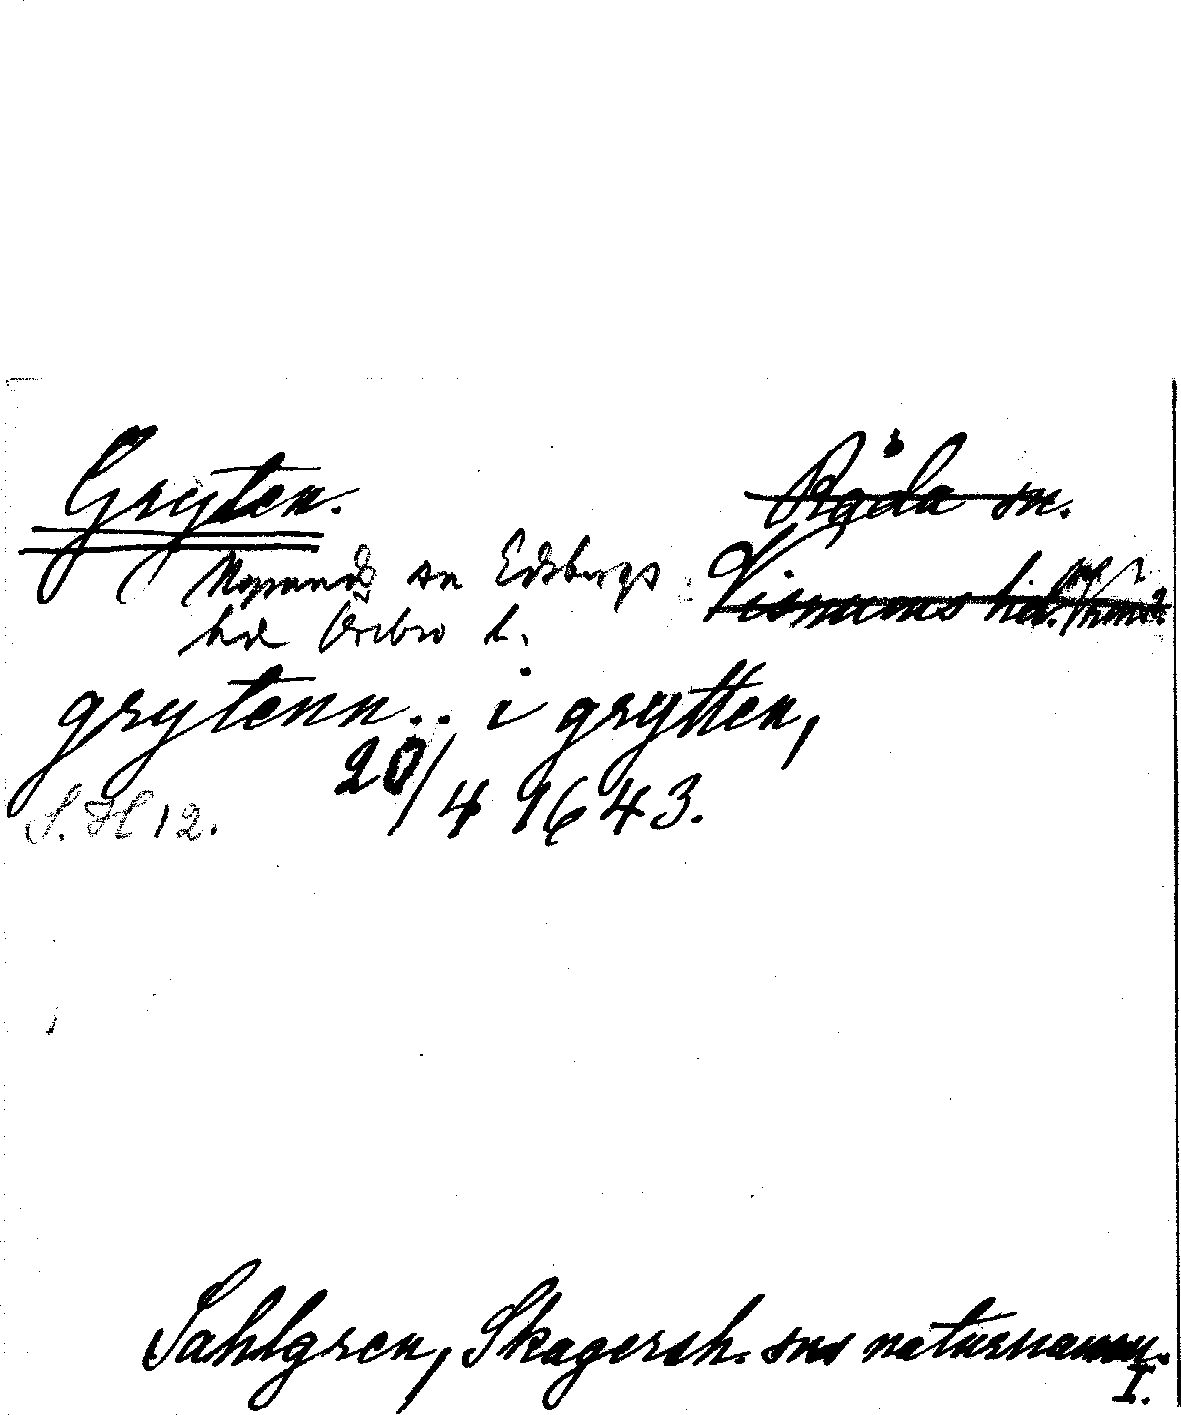 Gryten. Råda sn.
Nysunds sn Edsbergs Visnums hd.
hd Örebro l.
grytenn.. i grytten,
20/4 1643.
S. H 12.
Sahlgren, Skagersh. sns naturnamn.
I.